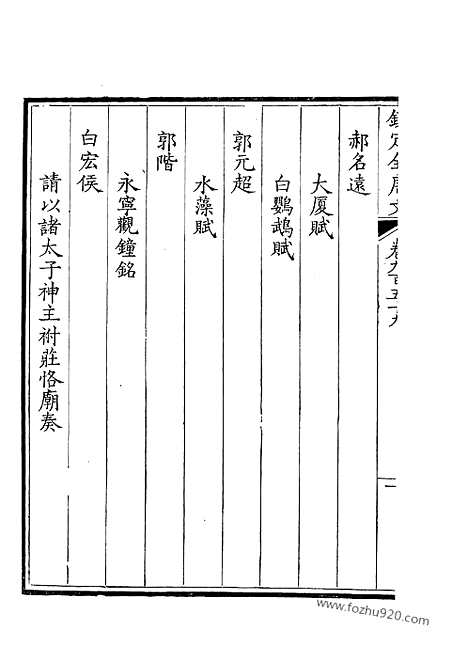 欽定全唐文
卷九百五十九
一
郝名遠
大厦賦
白鸚鵡賦
郭元超
水藻賦
郭階
永寧觀鐘銘
白宏儉
請以諸太子神主祔莊恪廟奏
www.fozhu920.com